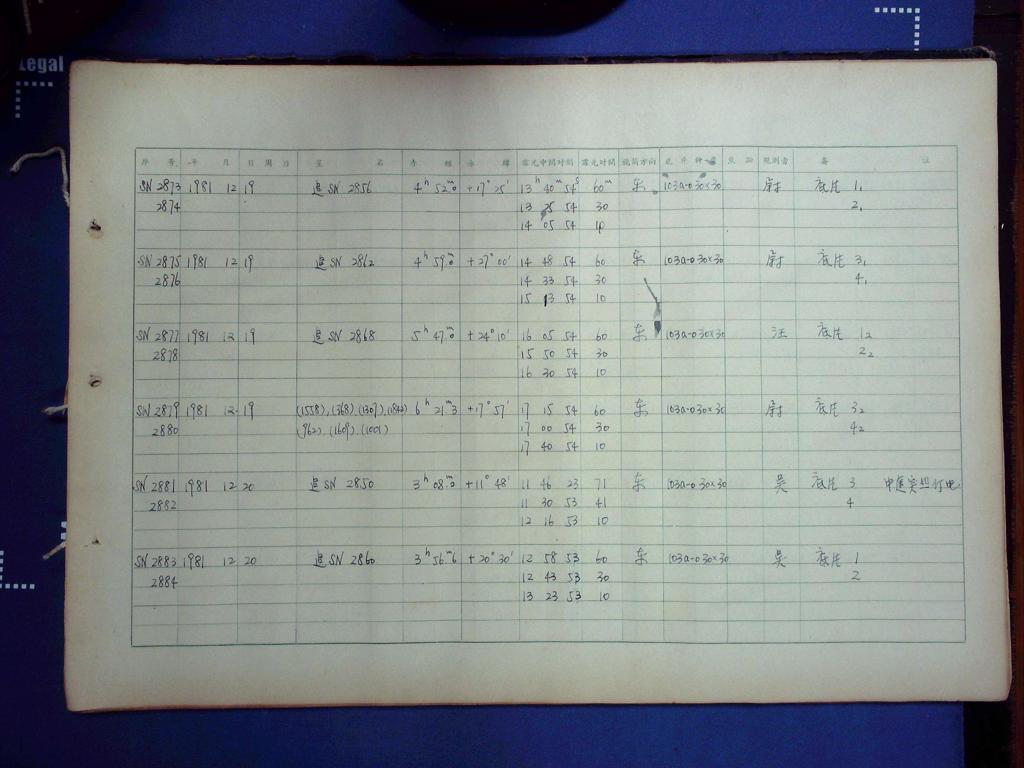 Legal
序 号 年 月 日 周日 星 名 赤 经 赤 纬 露光中间时刻 露光时间 镜筒方向 底片种 观测者 备 注
SN 2873 1981 12 19 追SN 2856 4h 52m0 +17° 25' 13h 40m 54s 60m 东 103a-0 30×30 尉 底片 1,
2874 13 25 54 30 2,
14 05 54 10
SN 2875 1981 12 19 追SN 2862 4h 59m0 +27° 00' 14 48 54 60 东 103a-0 30×30 尉 底片 3,
2876 14 33 54 30 4,
15 13 54 10
SN 2877 1981 12 19 追SN 2868 5h 47m0 +24° 10' 16 05 54 60 东 103a-0 30×30 汪 底片 12
2878 15 50 54 30 22
16 30 54 10
SN 2879 1981 12 19 (1558).(1368).(1309).(1844) 6h 21m3 +17° 57' 17 15 54 60 东 103a-0 30×30 尉 底片 32
2880 (962).(1609).(1001) 17 00 54 30 42
17 40 54 10
SN 2881 1981 12 20 追SN 2850 3h 08m2 +11° 48' 11 46 23 71 东 103a-0 30×30 吴 底片 3
2882 11 30 53 41 4
12 16 53 10
SN 2883 1981 12 20 追SN 2860 3h 56m6 +20° 30' 12 58 53 60 东 103a-0 30×30 吴 底片 1
2884 12 43 53 30 2
13 23 53 10